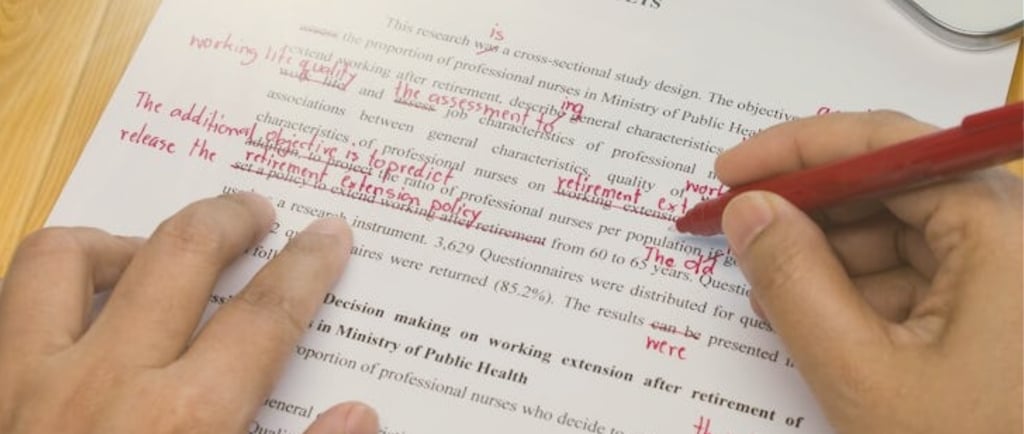 is
This research was a cross-sectional study design. The objective
the proportion of professional nurses in Ministry of Public
working life quality
extend working after retirement, describe general characteristics
ing
work life and assess job characteristics of professional
the assessment to
associations between general characteristics, quality of
work
The additional objective is to predict
characteristics of professional nurses on working extension
retirement ext
release the retirement extension policy
addition, to project the ratio of professional nurses per population if
set a policy to extend working after retirement from 60 to 65 years.
The old
a research instrument. 3,629 Questionnaires were distributed for
were returned (85.2%). The results can be presented
were
Decision making on working extension after retirement of
in Ministry of Public Health
proportion of professional nurses who decide to
th